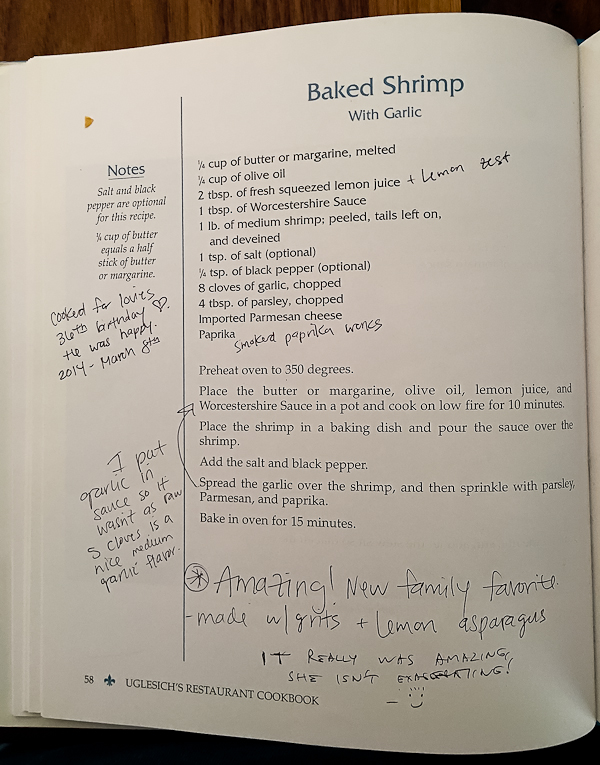 Baked Shrimp
With Garlic
Notes
Salt and black
pepper are optional
for this recipe.
¼ cup of butter
equals a half
stick of butter
or margarine.
cooked for lovies
36th birthday ♡.
He was happy.
2014 - March 8th
I put
garlic in
sauce so it
wasn't as raw
5 cloves is a
nice medium
garlic flavor.
¼ cup of butter or margarine, melted
¼ cup of olive oil
2 tbsp. of fresh squeezed lemon juice + Lemon zest
1 tbsp. of Worcestershire Sauce
1 lb. of medium shrimp; peeled, tails left on,
and deveined
1 tsp. of salt (optional)
¼ tsp. of black pepper (optional)
8 cloves of garlic, chopped
4 tbsp. of parsley, chopped
Imported Parmesan cheese
Paprika smoked paprika works
Preheat oven to 350 degrees.
Place the butter or margarine, olive oil, lemon juice, and
Worcestershire Sauce in a pot and cook on low fire for 10 minutes.
Place the shrimp in a baking dish and pour the sauce over the
shrimp.
Add the salt and black pepper.
Spread the garlic over the shrimp, and then sprinkle with parsley,
Parmesan, and paprika.
Bake in oven for 15 minutes.
Amazing! New family favorite.
- made w/ grits + lemon asparagus
IT REALLY WAS AMAZING,
SHE ISN'T EXAGGERATING!
58 UGLESICH'S RESTAURANT COOKBOOK